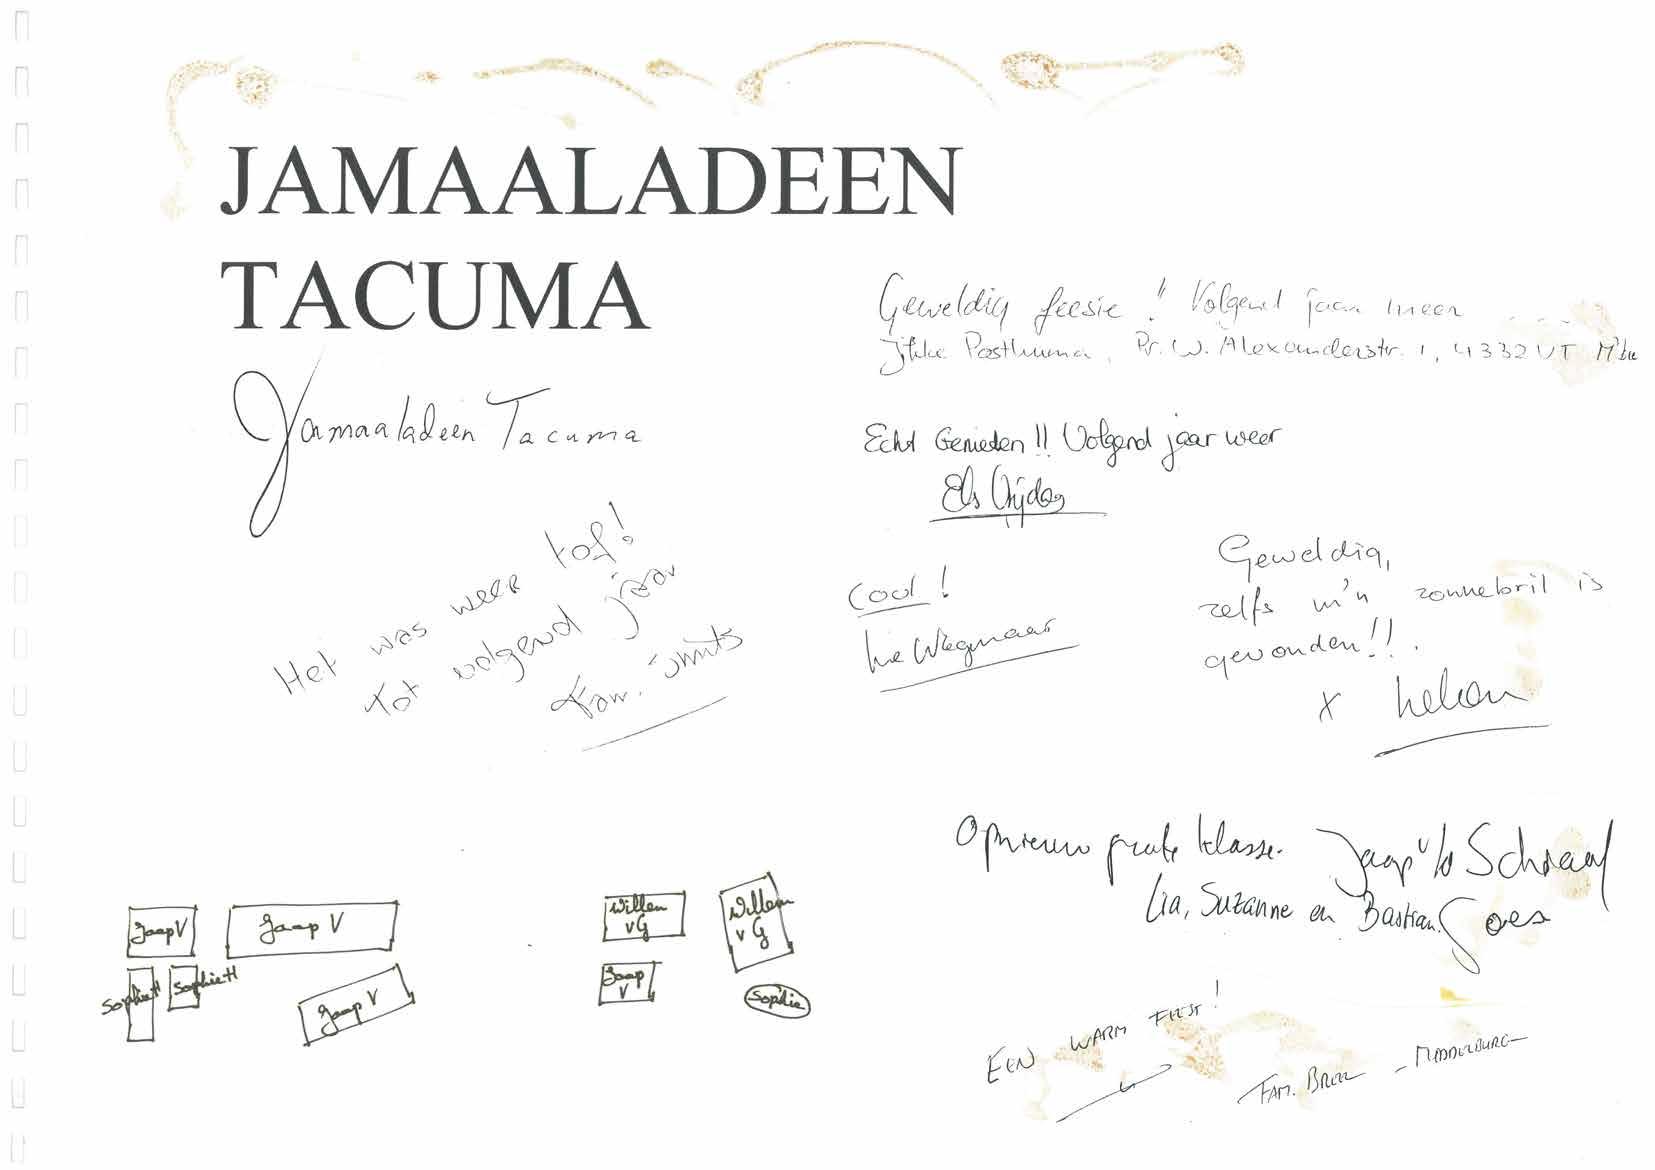 JAMAALADEEN
TACUMA
Jamaaladeen Tacuma
Geweldig feesie! Volgend jaar meer ....
Posthuma, Pr. W. Alexanderstr. 1, 4332VT M'bu
Echt Genieten!! Volgend jaar weer
Els Vrijdag
Het was weer tof!
tot volgend jaar
Fam. Smits
Cool!
Wegmaar
Geweldig,
zelfs m'n zonnebril is
gevonden!!.
x
Opnieuw grote klasse. Jaap v/d Schraaf
Lia, Suzanne en Bastiaan. Goes
Jaap V
Jaap V
Sophie H
Sophie H
Jaap V
Willem
v G
Willem
v G
Jaap
V
Sophie
EEN WARM FEEST!
FAM. - MIDDELBURG -